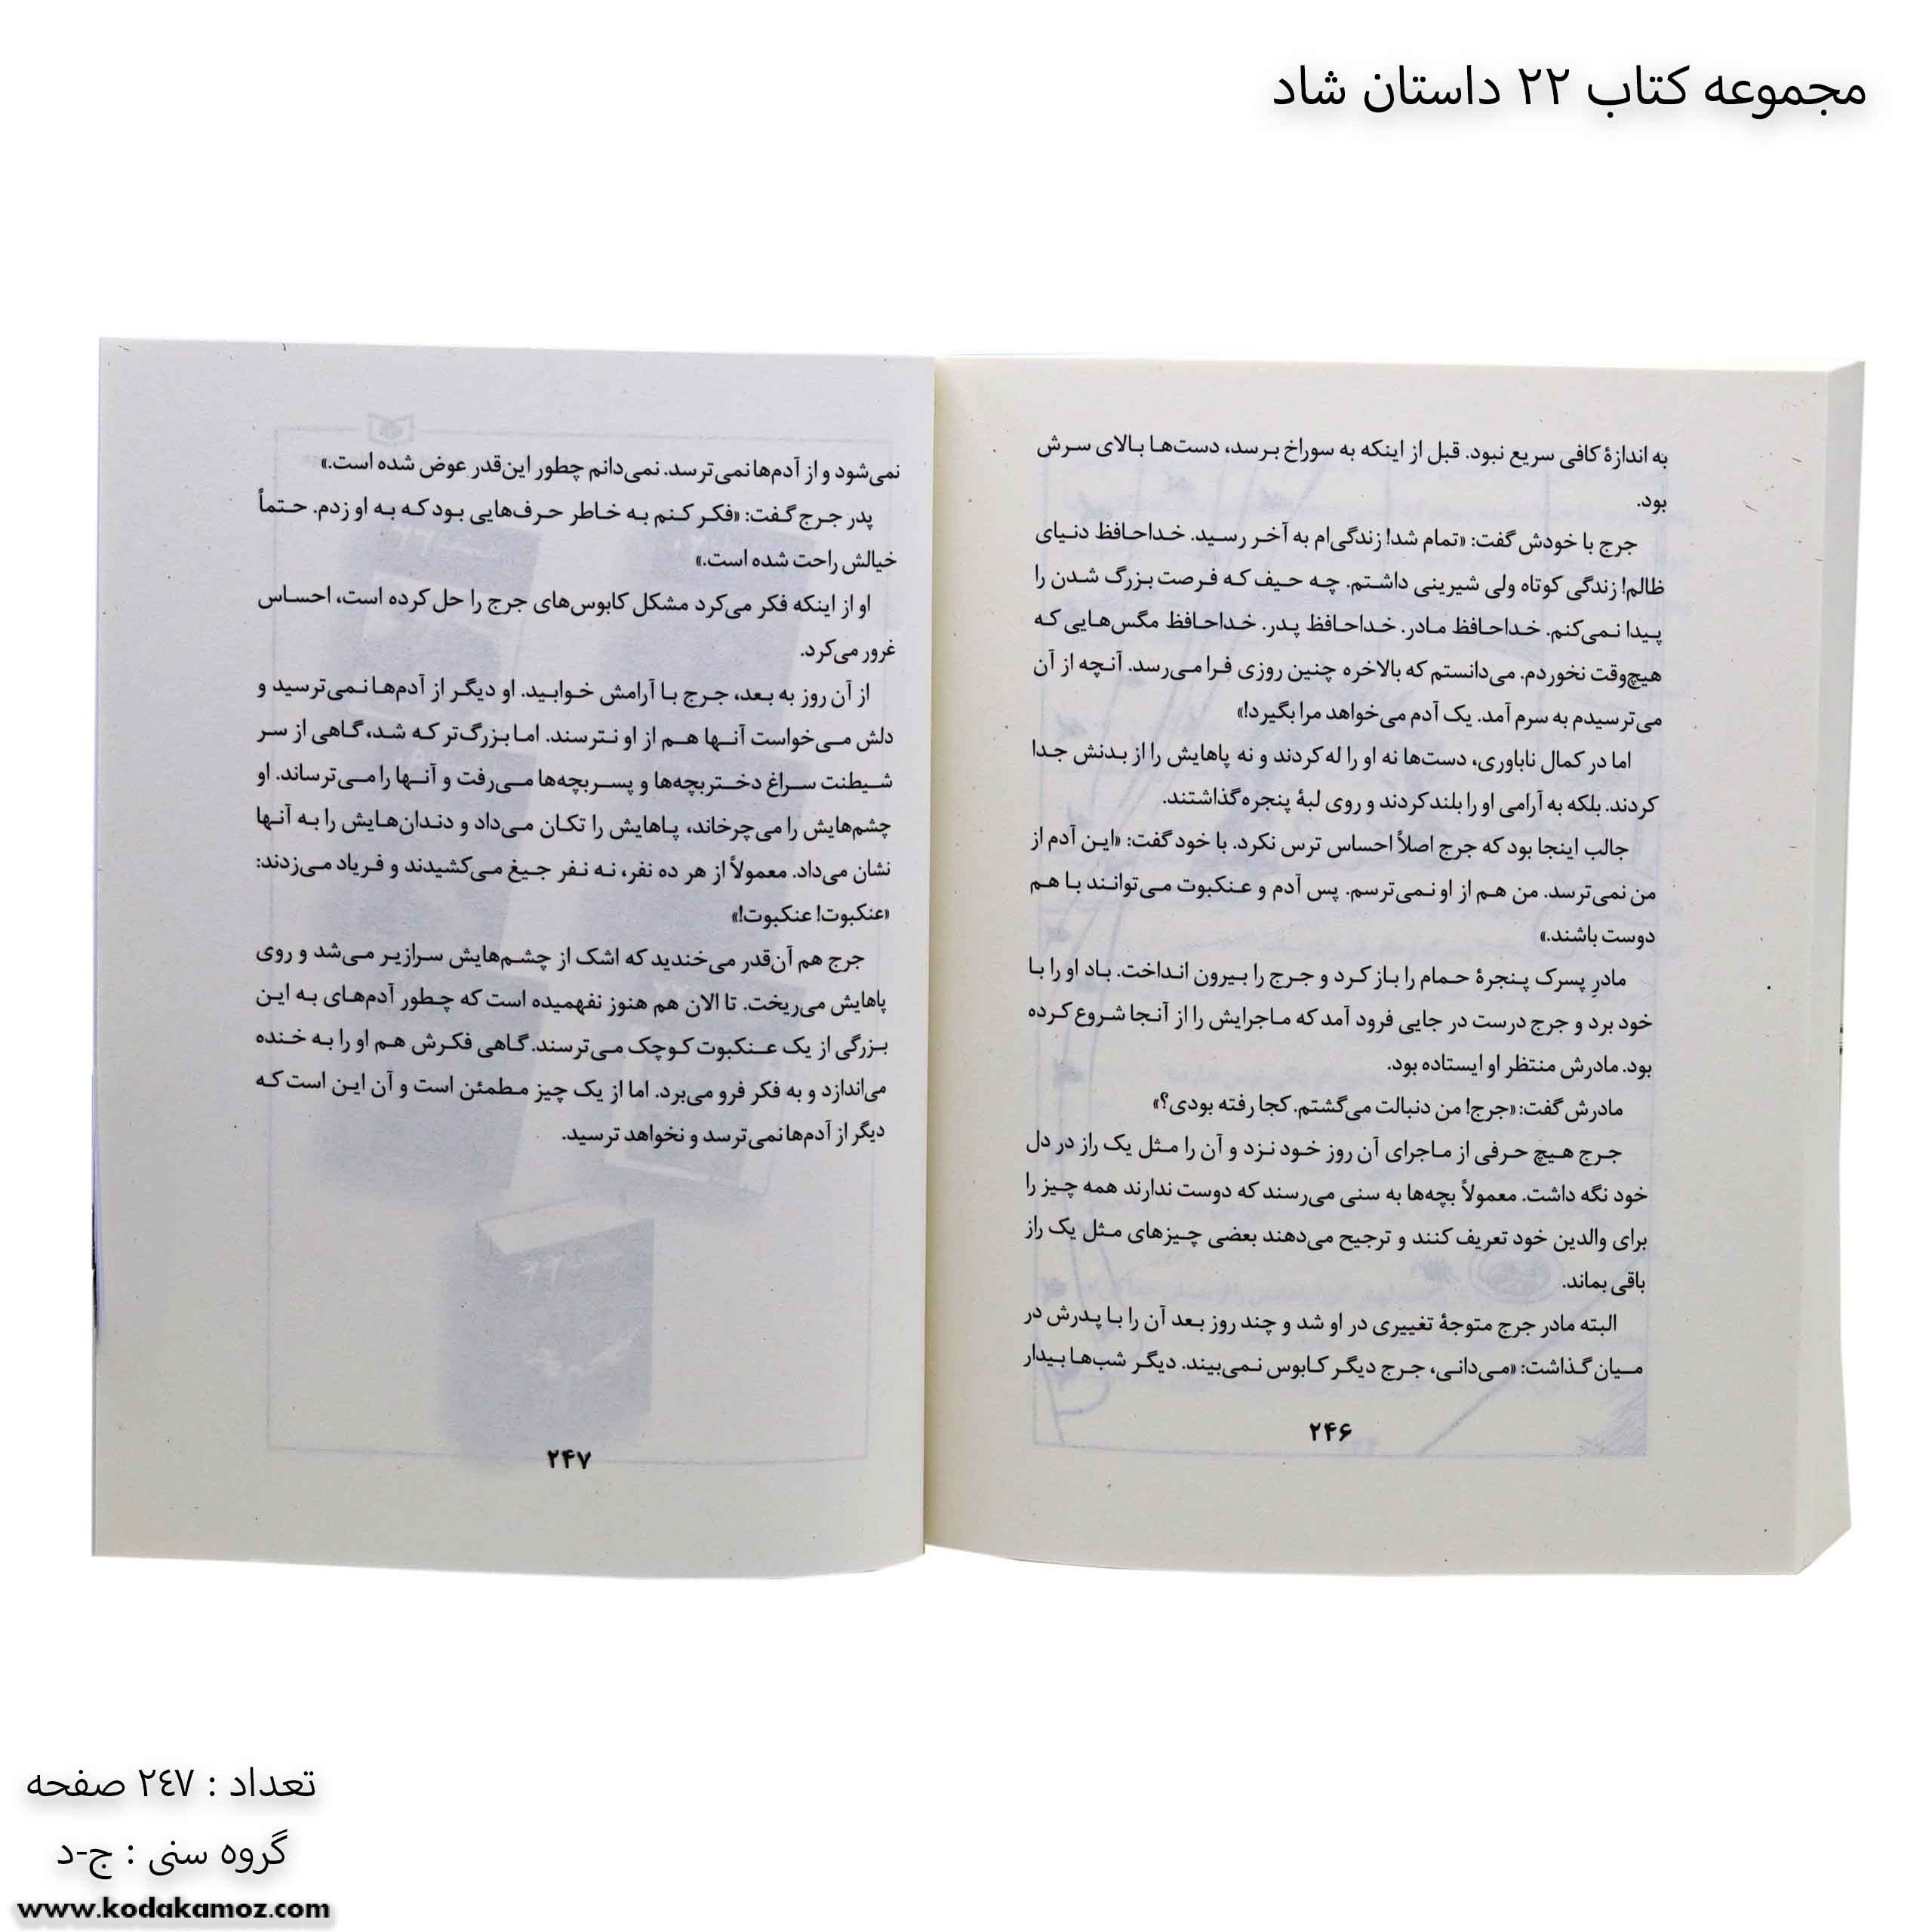 مجموعه کتاب ۲۲ داستان شاد
به اندازهٔ کافی سریع نبود. قبل از اینکه به سوراخ برسد، دست‌ها بالای سرش
بود.
جرج با خودش گفت: «تمام شد! زندگی‌ام به آخر رسید. خداحافظ دنیای
ظالم! زندگی کوتاه ولی شیرینی داشتم. چه حیف که فرصت بزرگ شدن را
پیدا نمی‌کنم. خداحافظ مادر. خداحافظ پدر. خداحافظ مگس‌هایی که
هیچ‌وقت نخوردم. می‌دانستم که بالاخره چنین روزی فرا می‌رسد. آنچه از آن
می‌ترسیدم به سرم آمد. یک آدم می‌خواهد مرا بگیرد!»
اما در کمال ناباوری، دست‌ها نه او را له کردند و نه پاهایش را از بدنش جدا
کردند. بلکه به آرامی او را بلند کردند و روی لبهٔ پنجره گذاشتند.
جالب اینجا بود که جرج اصلاً احساس ترس نکرد. با خود گفت: «این آدم از
من نمی‌ترسد. من هم از او نمی‌ترسم. پس آدم و عنکبوت می‌توانند با هم
دوست باشند.»
مادرِ پسرک پنجرهٔ حمام را باز کرد و جرج را بیرون انداخت. باد او را با
خود برد و جرج درست در جایی فرود آمد که ماجرایش را از آنجا شروع کرده
بود. مادرش منتظر او ایستاده بود.
مادرش گفت: «جرج! من دنبالت می‌گشتم. کجا رفته بودی؟»
جرج هیچ حرفی از ماجرای آن روز خود نزد و آن را مثل یک راز در دل
خود نگه داشت. معمولاً بچه‌ها به سنی می‌رسند که دوست ندارند همه چیز را
برای والدین خود تعریف کنند و ترجیح می‌دهند بعضی چیزهای مثل یک راز
باقی بماند.
البته مادر جرج متوجهٔ تغییری در او شد و چند روز بعد آن را با پدرش در
میان گذاشت: «می‌دانی، جرج دیگر کابوس نمی‌بیند. دیگر شب‌ها بیدار
۲۴۶
نمی‌شود و از آدم‌ها نمی‌ترسد. نمی‌دانم چطور این‌قدر عوض شده است.»
پدر جرج گفت: «فکر کنم به خاطر حرف‌هایی بود که به او زدم. حتماً
خیالش راحت شده است.»
او از اینکه فکر می‌کرد مشکل کابوس‌های جرج را حل کرده است، احساس
غرور می‌کرد.
از آن روز به بعد، جرج با آرامش خوابید. او دیگر از آدم‌ها نمی‌ترسید و
دلش می‌خواست آنها هم از او نترسند. اما بزرگ‌تر که شد، گاهی از سر
شیطنت سراغ دختربچه‌ها و پسربچه‌ها می‌رفت و آنها را می‌ترساند. او
چشم‌هایش را می‌چرخاند، پاهایش را تکان می‌داد و دندان‌هایش را به آنها
نشان می‌داد. معمولاً از هر ده نفر، نه نفر جیغ می‌کشیدند و فریاد می‌زدند:
«عنکبوت! عنکبوت!»
جرج هم آن‌قدر می‌خندید که اشک از چشم‌هایش سرازیر می‌شد و روی
پاهایش می‌ریخت. تا الان هم هنوز نفهمیده است که چطور آدم‌های به این
بزرگی از یک عنکبوت کوچک می‌ترسند. گاهی فکرش هم او را به خنده
می‌اندازد و به فکر فرو می‌برد. اما از یک چیز مطمئن است و آن این است که
دیگر از آدم‌ها نمی‌ترسد و نخواهد ترسید.
۲۴۷
تعداد : ٢٤٧ صفحه
گروه سنی : ج-د
www.kodakamoz.com